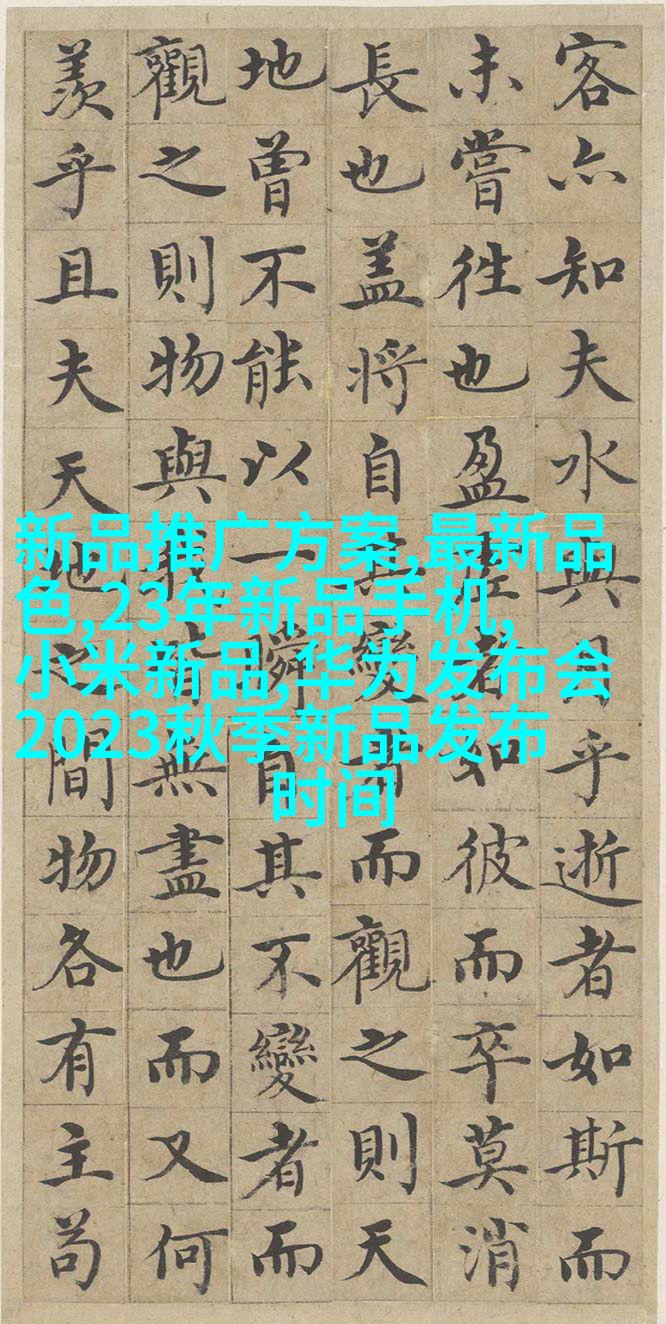 客亦知夫水與月乎逝者如斯而
未嘗徃也盈虛者如彼而卒莫消
長也盖將自其變者而觀之則天
地曾不能以一瞬自其不變者而
觀之則物與我皆無盡也而又何
羨乎且夫天地之間物各有主苟
新品推广方案,最新品
色,23年新品手机,
小米新品,华为发布会
2023秋季新品发布
时间